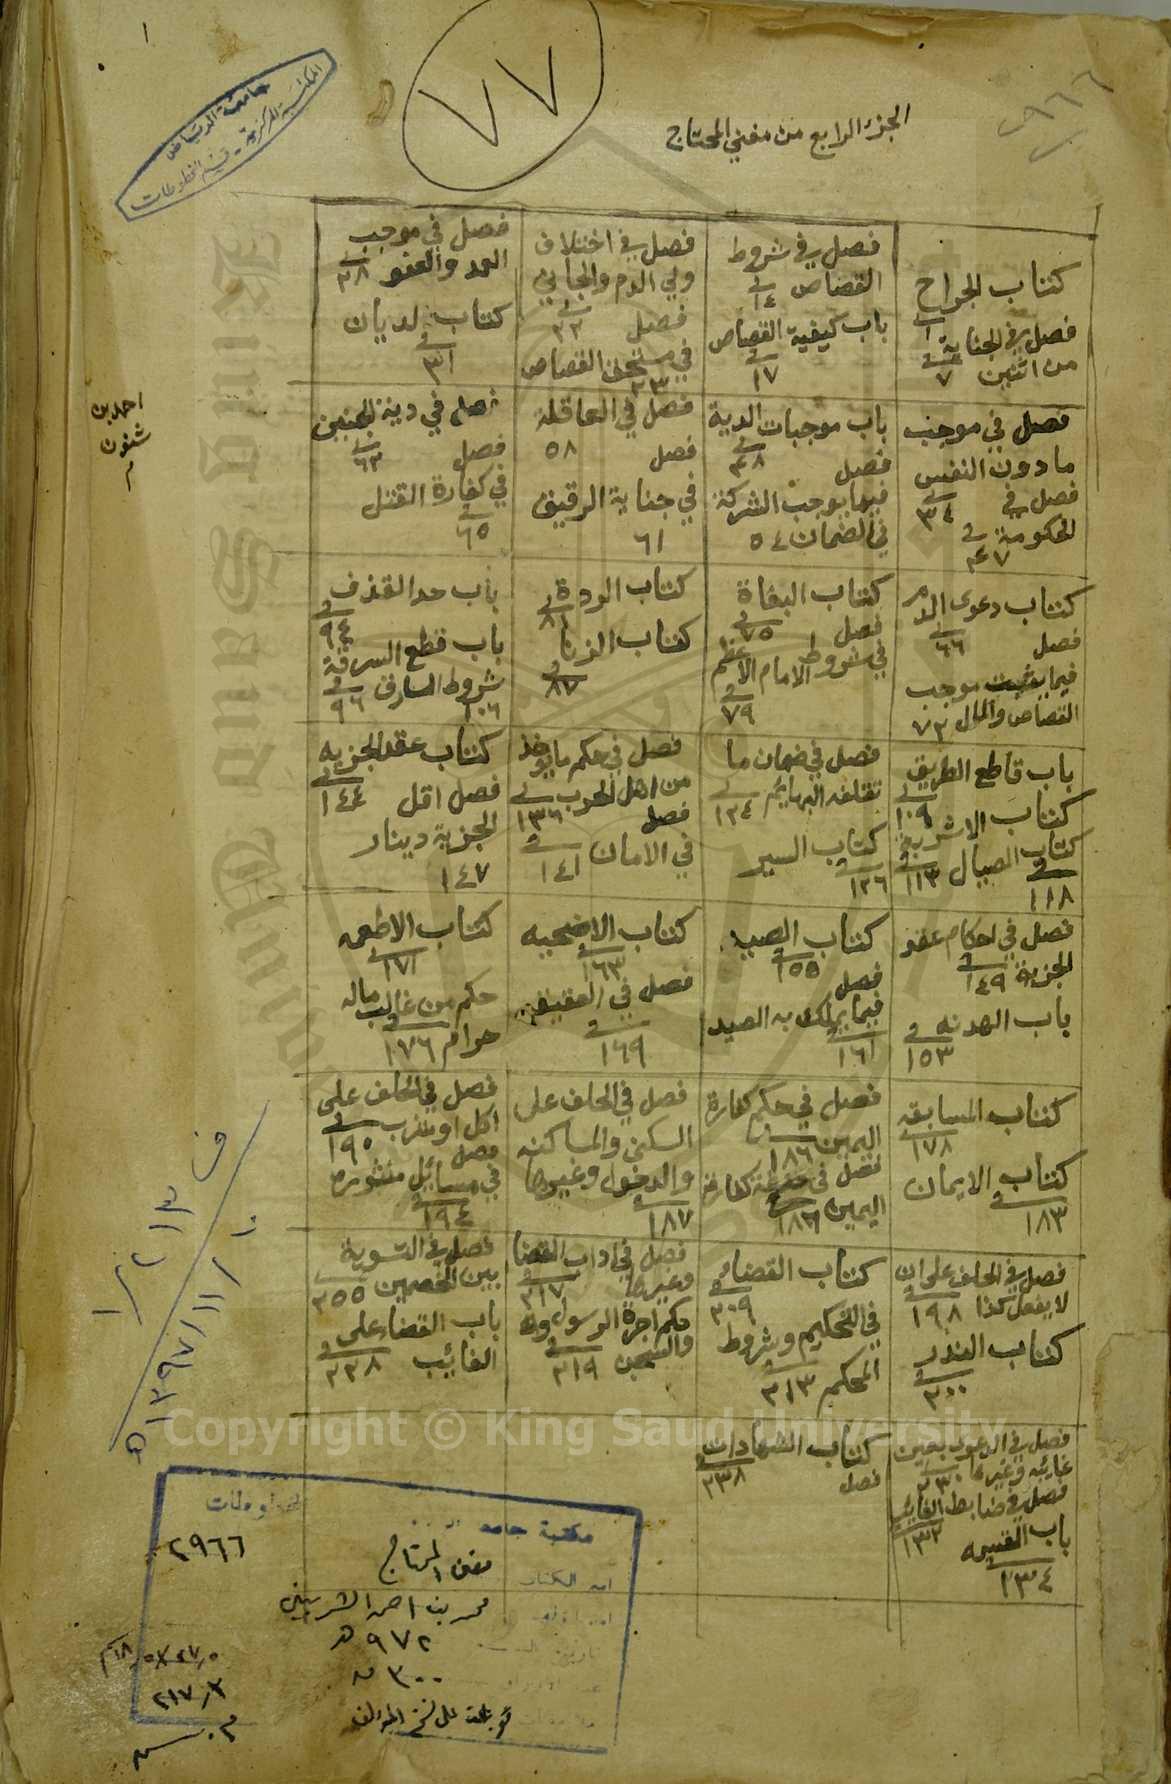 ١
٧٧
جامعة الرياض
المكتبة المركزية - قسم المخطوطات
الجزء الرابع من مغني المحتاج
كتاب الجراح
١
فصل في الجناية
من اثنين ٧
فصل في شروط
القصاص ١٤
باب كيفية القصاص
١٧
فصل في اختلاف
ولي الدم والجاني
٢٢ فصل
في مستحق القصاص
٢٣
فصل في موجب
العمد والعفو ٢٨
كتاب الديات
٣١
فصل في موجب
مادون النفس
فصل في ٣٤
الحكومة ٤٧
باب موجبات الدية
فصل ٤٨
فيما يوجب الشركة
في الضمان ٥٤
فصل في العاقلة
فصل ٥٨
في جناية الرقيق
٦١
فصل في دية الجنين
فصل ٦٣
في كفارة القتل
٦٥
كتاب دعوى الدم
فصل ٦٦
فيما يثبت موجب
القصاص والمال ٧٢
كتاب البغاة
فصل ٧٥
في شروط الامام الاعظم
٧٩
كتاب الردة
٨١
كتاب الزنا
٨٧
باب حد القذف
٩٤
باب قطع السرقة
شروط السارق ٩٦
١٠٦
باب قاطع الطريق
١٠٩
كتاب الاشربة
كتاب الصيال ١١٣
١١٨
فصل في ضمان ما
تتلفه البهايم ١٢٤
كتاب السير
١٢٦
فصل في حكم ما يؤخذ
من اهل الحرب ١٣٦
فصل
في الامان ١٤١
كتاب عقد الجزيه
فصل اقل ١٤٤
الجزية دينار
١٤٧
فصل في احكام عقد
الجزية ١٤٩
باب الهدنه
١٥٣
كتاب الصيد
١٥٥
فصل
فيما يملك به الصيد
١٦١
كتاب الاضحيه
١٦٣
فصل في العقيقه
١٦٩
كتاب الاطعمه
١٧١
حكم من غالب ماله
حرام ١٧٦
كتاب المسابقه
١٧٨
كتاب الايمان
١٨٣
فصل في حكم كفارة
اليمين ١٨٦
فصل في صفة كفارة
اليمين ١٨٦
فصل في الحلف على
السكنى والمساكنه
والدخول وغيرها
١٨٧
فصل في الحلف على
اكل او شرب ١٩٠
فصل
في مسائل منثوره
١٩٤
فصل في الحلف على ان
لا يفعل كذا ١٩٨
كتاب النذر
٢٠٠
كتاب القضاء
٢٠٩
في التحكيم وشروط
المحكم ٢١٣
فصل في اداب القضا
وغيرها ٢١٧
حكم اجرة الرسول
والسجن ٢١٩
فصل في التسوية
بين الخصمين ٢٥٥
باب القضا على
الغائب ٢٢٨
فصل في الدعوى بعين
غائبه وغيرها ٢٣٠
فصل في ضابط الغائب
١٣٢
باب القسمه
١٣٤
كتاب الشهادات
٢٣٨
فصل
احمد بن
شنون
ف ١٢١٣/١
١٣٩٧/١١/١٠ هـ
Copyright © King Saud University
مكتبة جامعة
المخطوطات
٢٩٦٦
اسم الكتاب
مغني المحتاج
محمد بن احمد الشربيني
٩٧٢ هـ
٣٠٠
قوبلت على نسخ المؤلف
٢١٧/٢